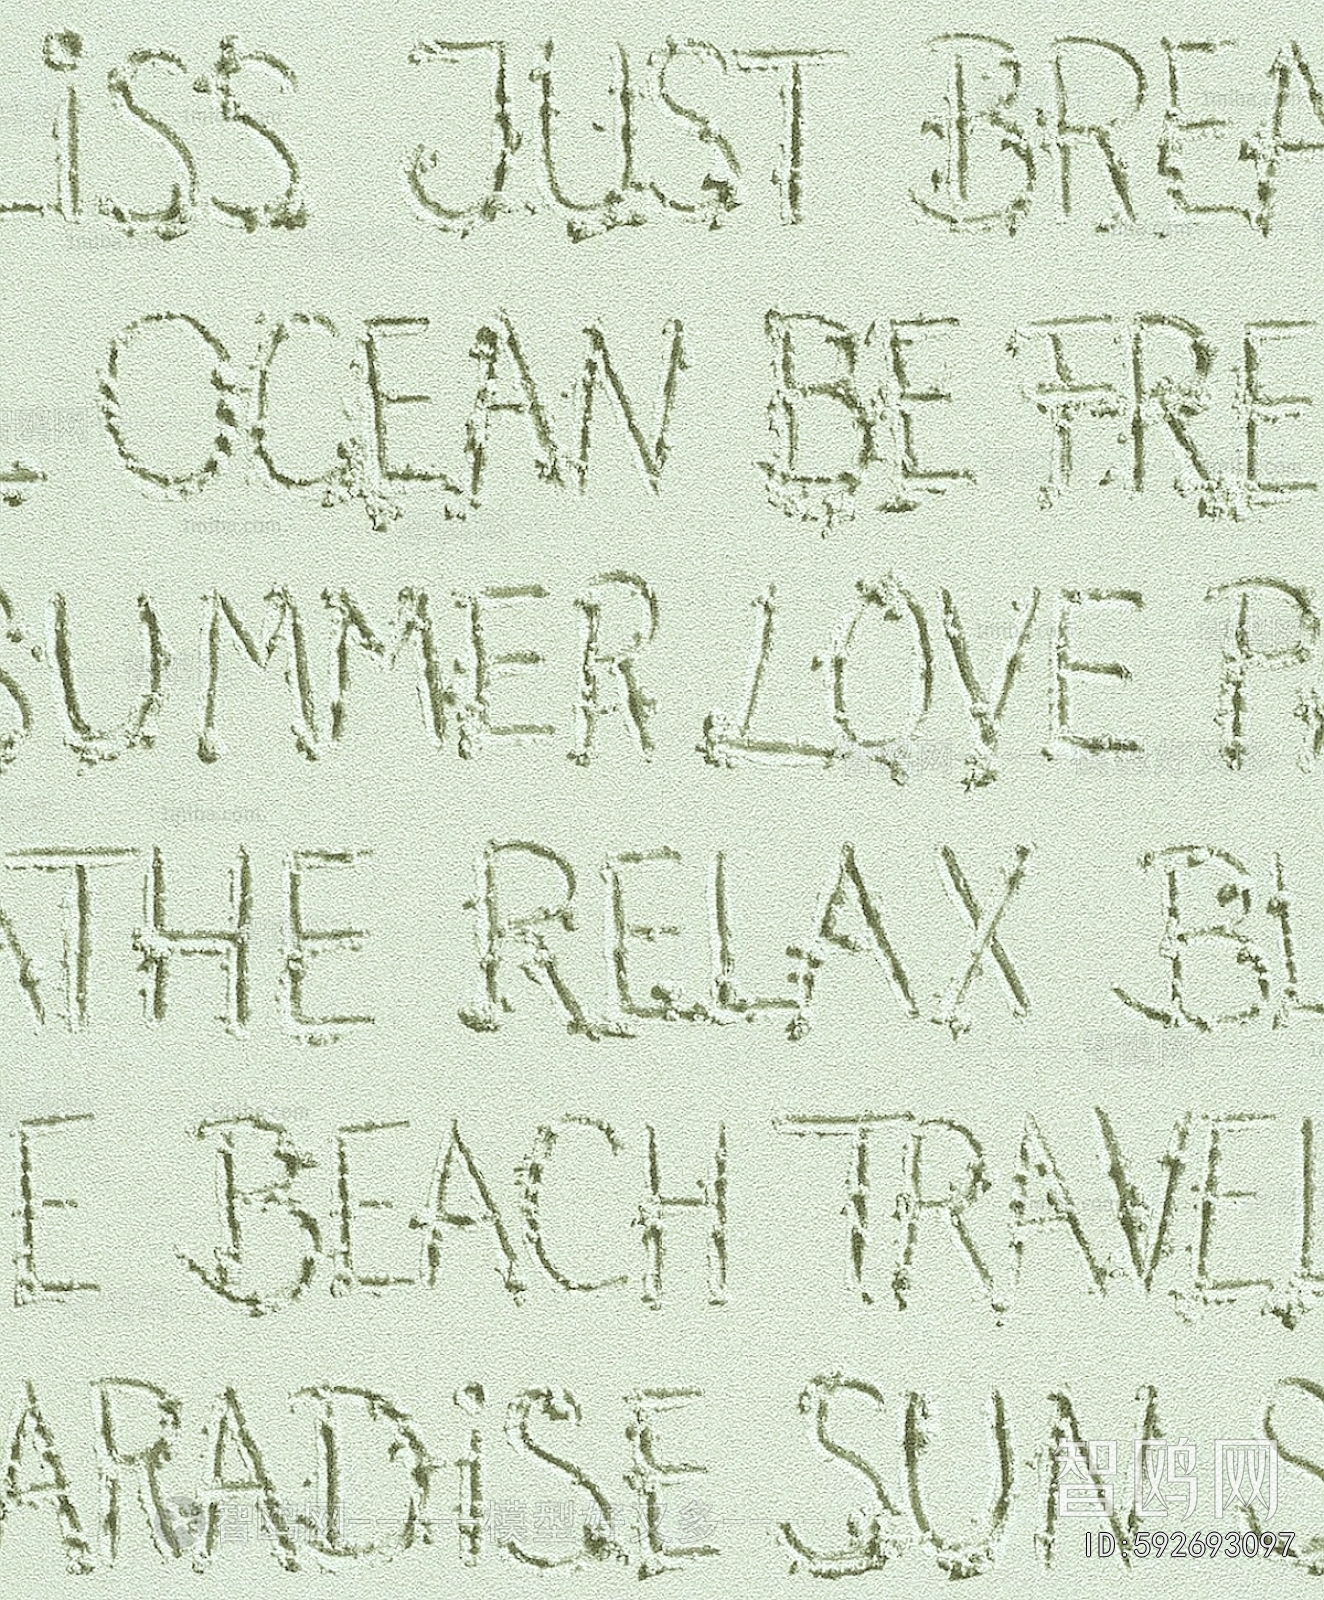 LiSS JUST BREA
OCEAN BE FREE
SUMMER LOVE P
ATHE RELAX BL
E BEACH TRAVEL
ARADiSE SUN S
智鸥网
ID:592693097
智鸥网——模型好又多
3mjba.com